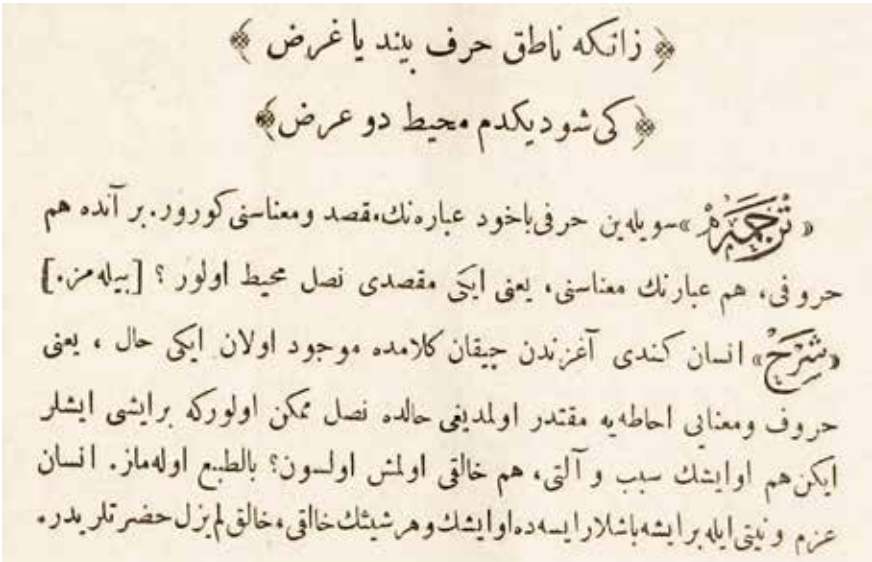 ﴿ زانكه ناطق حرف بيند يا غرض ﴾
﴿ كى شود يكدم محيط دو عرض ﴾
« ترجمه » سويله‌ين حرفى ياخود عباره‌نك، مقصد ومعناسنى كورور. بر آنده هم
حروفى، هم عبارنك معناسنى، يعنى ايكى مقصدى نصل محيط اولور ؟ [بيله‌مز.]
«شرح» انسان كندى آغزندن چيقان كلامده موجود اولان ايكى حال ، يعنى
حروف ومعنايى احاطه‌يه مقتدر اولمديغى حالده نصل ممكن اولوركه برايشى ايشلر
ايكن هم اوايشك سبب و آلتى، هم خالقى اولمش اولسون؟ بالطبع اوله‌ماز. انسان
عزم و نيتى ايله بر ايشه باشلار ايسه ده او ايشك و هر شيئك خالقى، خالق لم يزل حضرتلريدر.